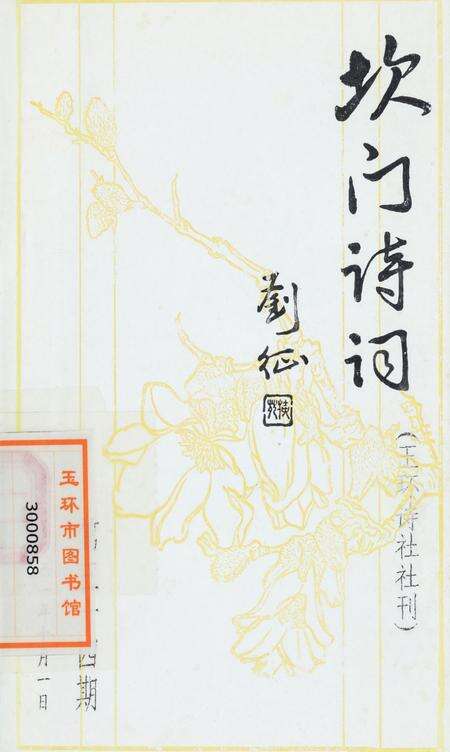 坎门诗词
(玉环诗社社刊)
劉征
四期
年 月一日
玉环市图书馆
3000858